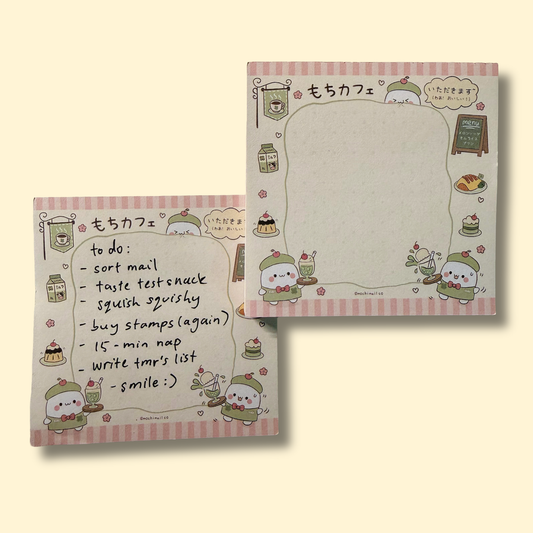 もちカフェ
いただきます
(わあ! おいしい!!)
to do:
- sort mail
- taste test snack
- squish squishy
- buy stamps (again)
- 15-min nap
- write tmr's list
- smile :)
もちカフェ
いただきます
(わあ! おいしい!!)
menu